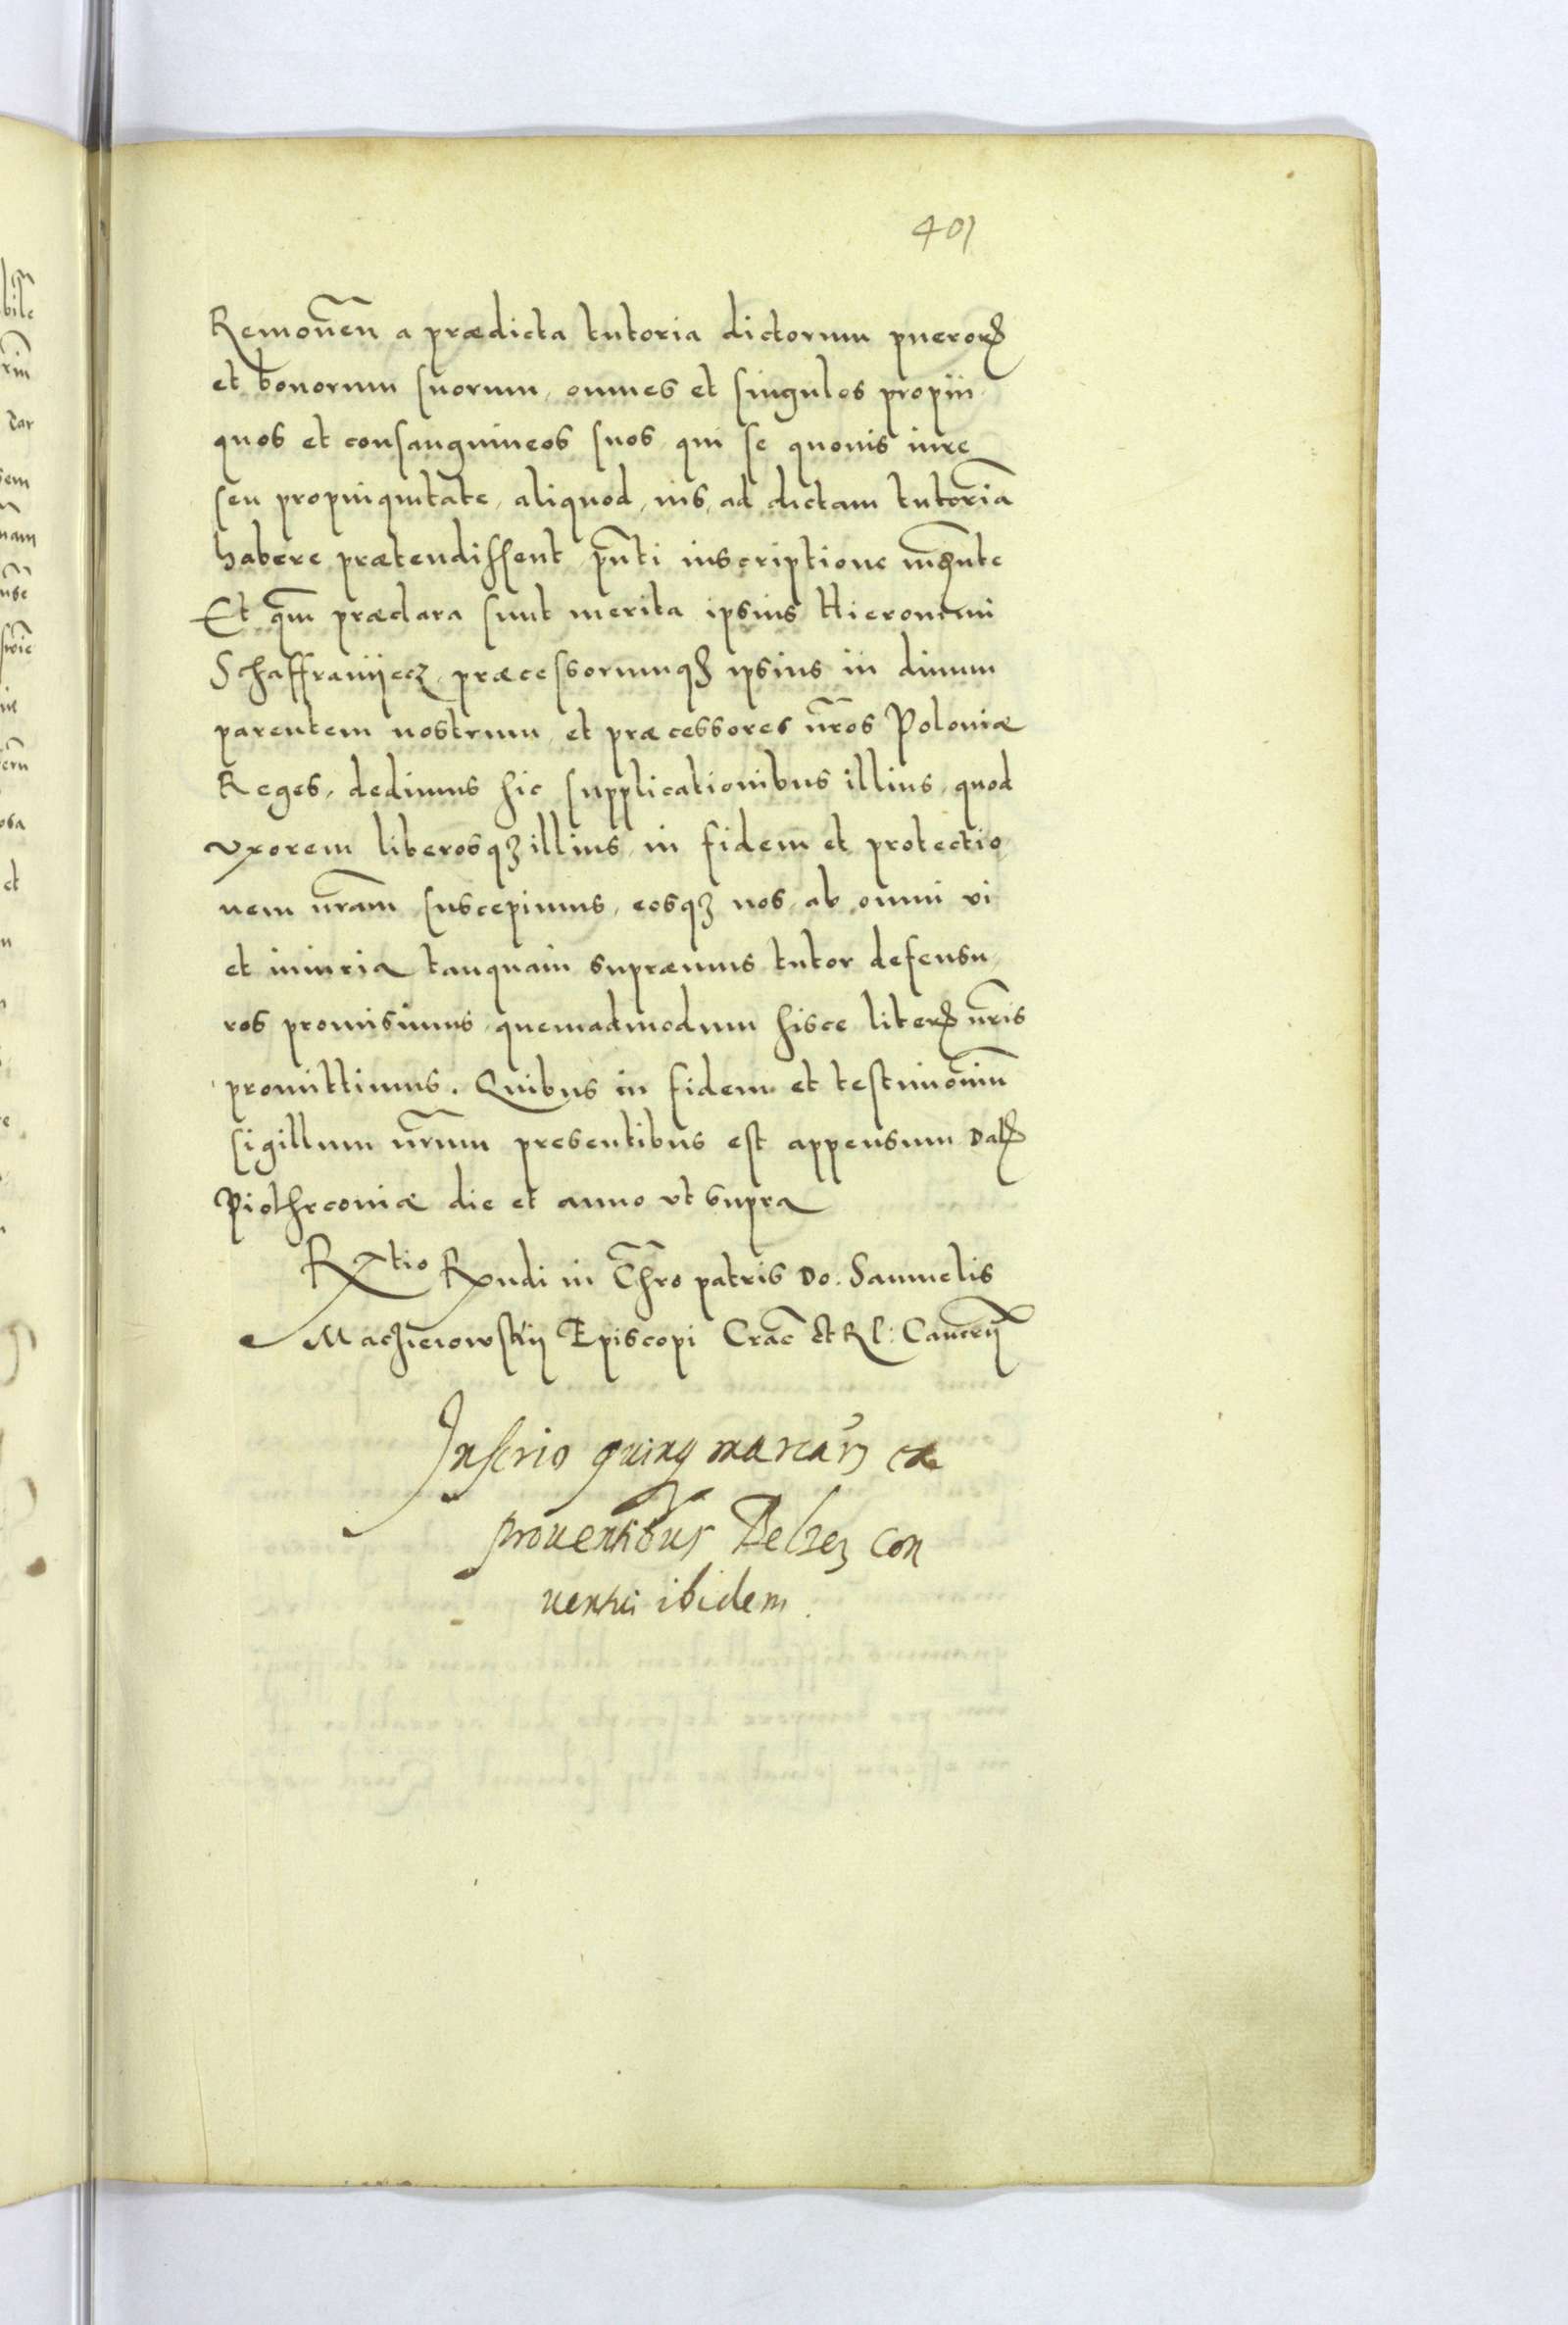 401
Remoueñ a prædicta tutoria dictorum pueroꝝ
et bonorum suorum, omnes et singulos propin
quos et consanguineos suos qui se quouis iure
seu propinquitate, aliquod, ius, ad dictam tutoriã
habere prætendissent, pñti inscriptione
Et qm̃ præclara sunt merita ipsius Hieronimi
Schaffranijecz, præcessorumqꝫ ipsius in diuum
parentem nostrum, et præcessores nr̃os Poloniæ
Reges, dedimus hic supplicationibus illius, quod
vxorem liberosqꝫ illius, in fidem et protectio
nem nr̃am suscepimus, eosqꝫ nos, ab omni vi
et iniuria tanquam supræmus tutor defensu
ros promisimus, quemadmodum hisce literꝭ nr̃is
promittimus. Quibus in fidem et testimoniũ
sigillum nr̃um presentibus est appensum Datꝭ
Piothrconiæ die et anno vt supra
Rtio Rndi in Chro patris Do. Samuelis
Maczieiowskij Episcopi Crac̃ et R P: Cancrij
Inscrio quinqꝫ marcarꝫ ex
prouentibus Belzeñ con
uentui ibidem.